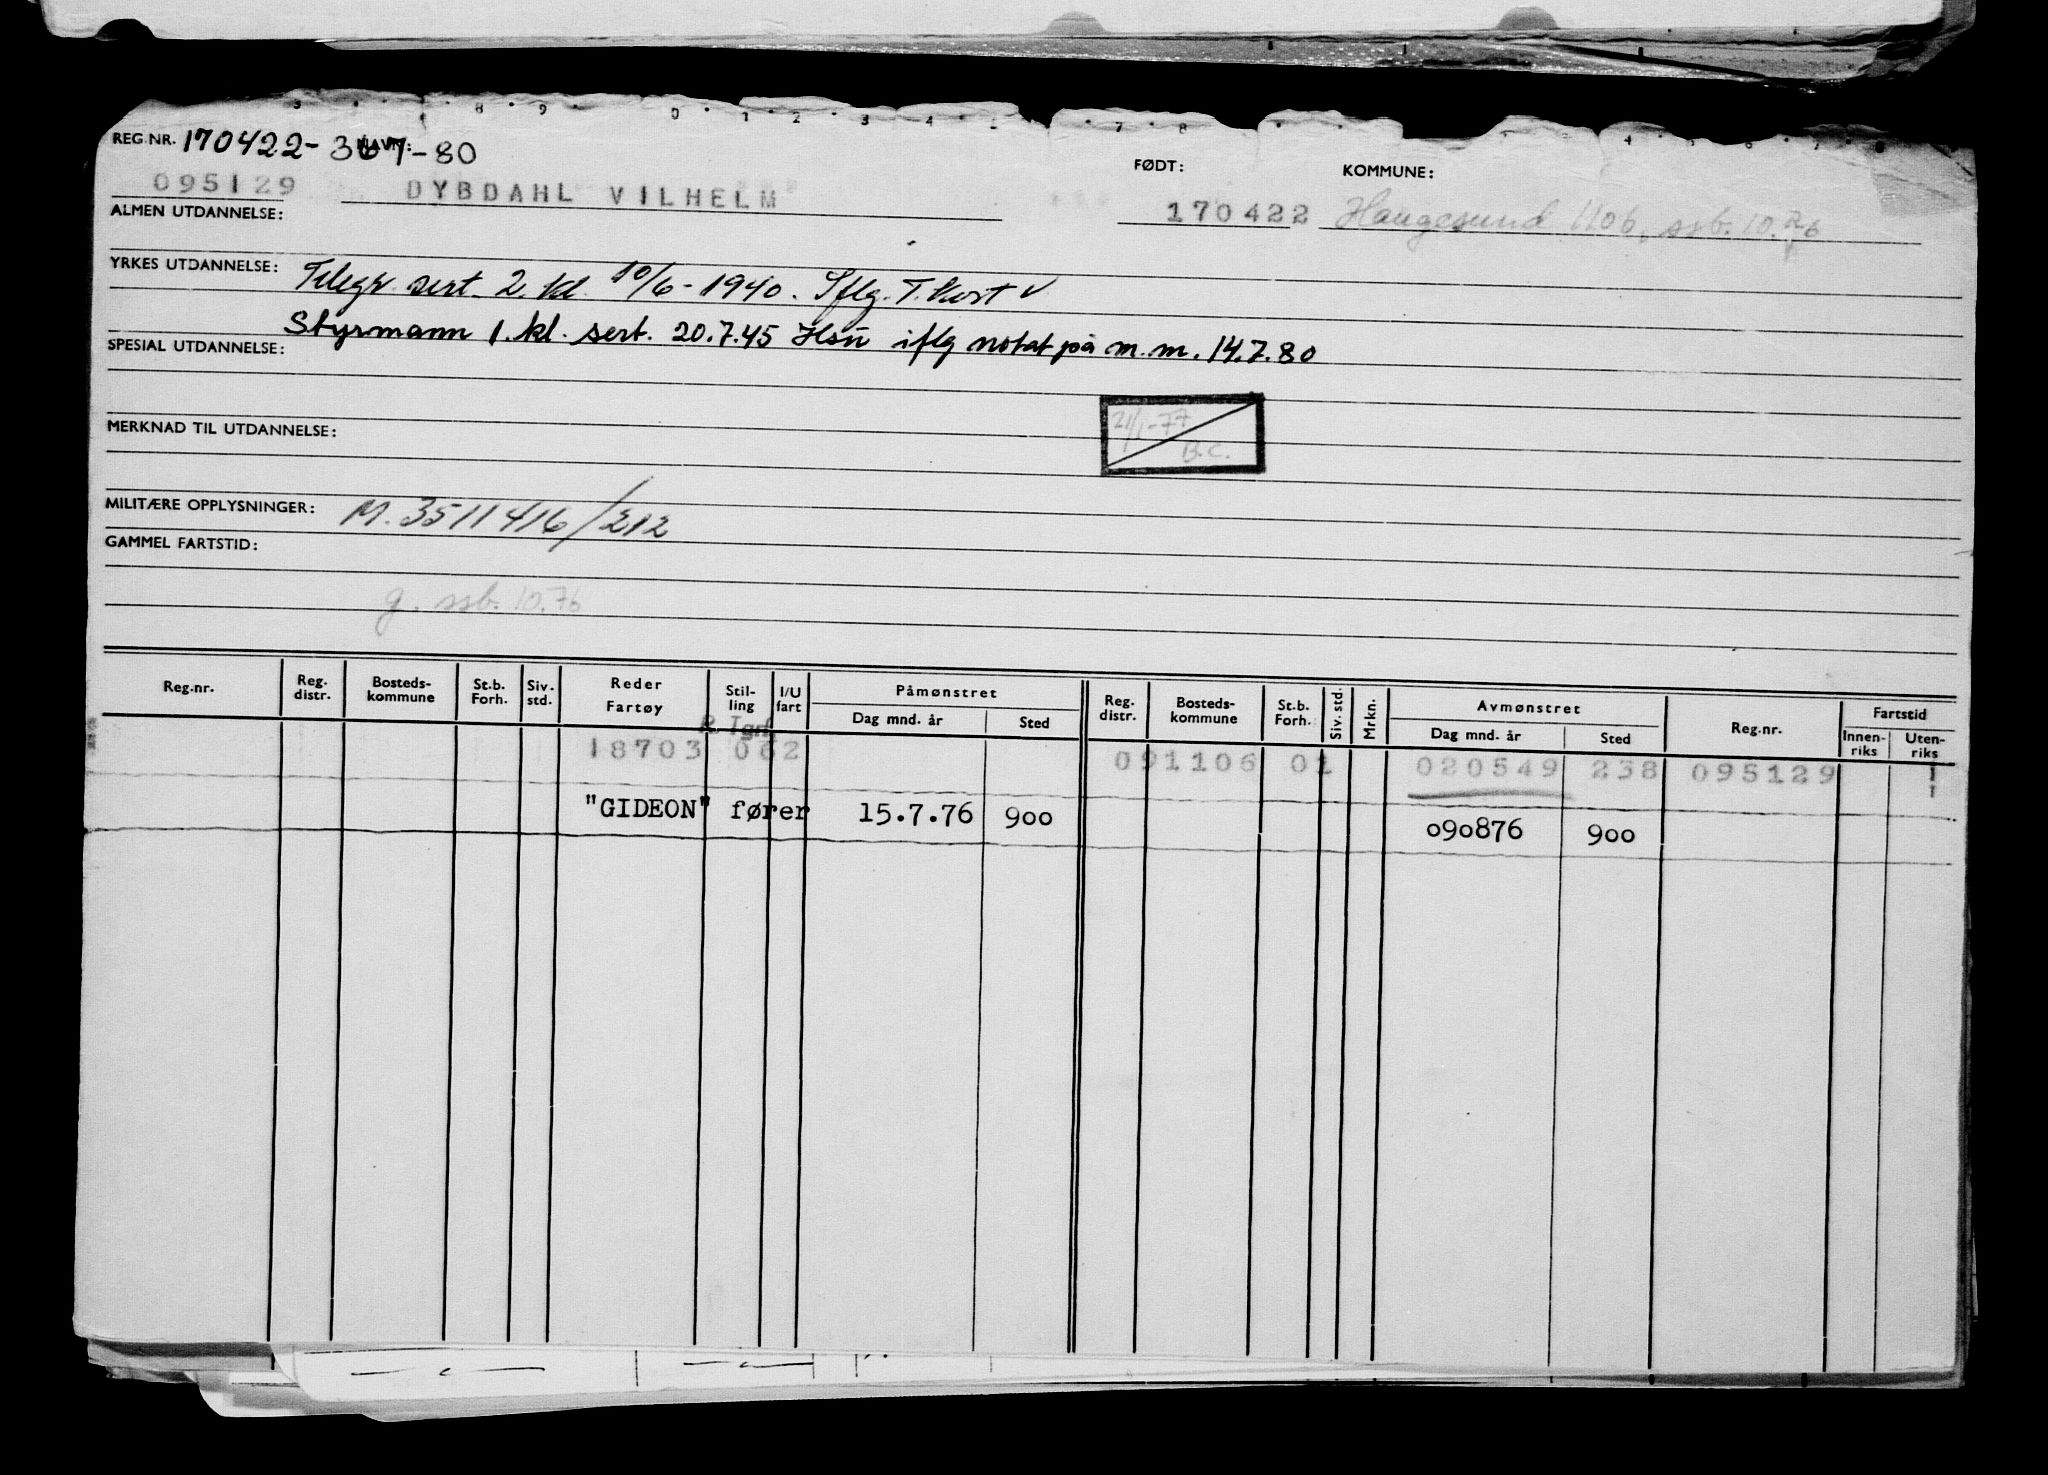 REG.NR. 170422-367-80 NAVN: FØDT: KOMMUNE:
095129 DYBDAHL VILHELM 170422 Haugesund 1106, ssb. 10.76
ALMEN UTDANNELSE:
YRKES UTDANNELSE: Telegr. sert. 2. kl. 10/6-1940. Iflg. T. kort V
Styrmann 1. kl. sert. 20.7.45 Hsu iflg notat på m.m. 14.7.80
SPESIAL UTDANNELSE:
21/1-77
B.C.
MERKNAD TIL UTDANNELSE:
MILITÆRE OPPLYSNINGER: M. 3511416/212
GAMMEL FARTSTID:
g. ssb. 10.76
Reg.nr. Reg. distr. Bosteds-kommune St.b. Forh. Siv. std. Reder Fartøy Stil-ling I/U fart Påmønstret Dag mnd. år Sted Reg. distr. Bosteds-kommune St.b. Forh. Siv. std. Mrkn. Avmønstret Dag mnd. år Sted Reg.nr. Fartstid Innen-riks Uten-riks
R. Tgrf
18703 062 091106 01 020549 238 095129
"GIDEON" fører 15.7.76 900 090876 900